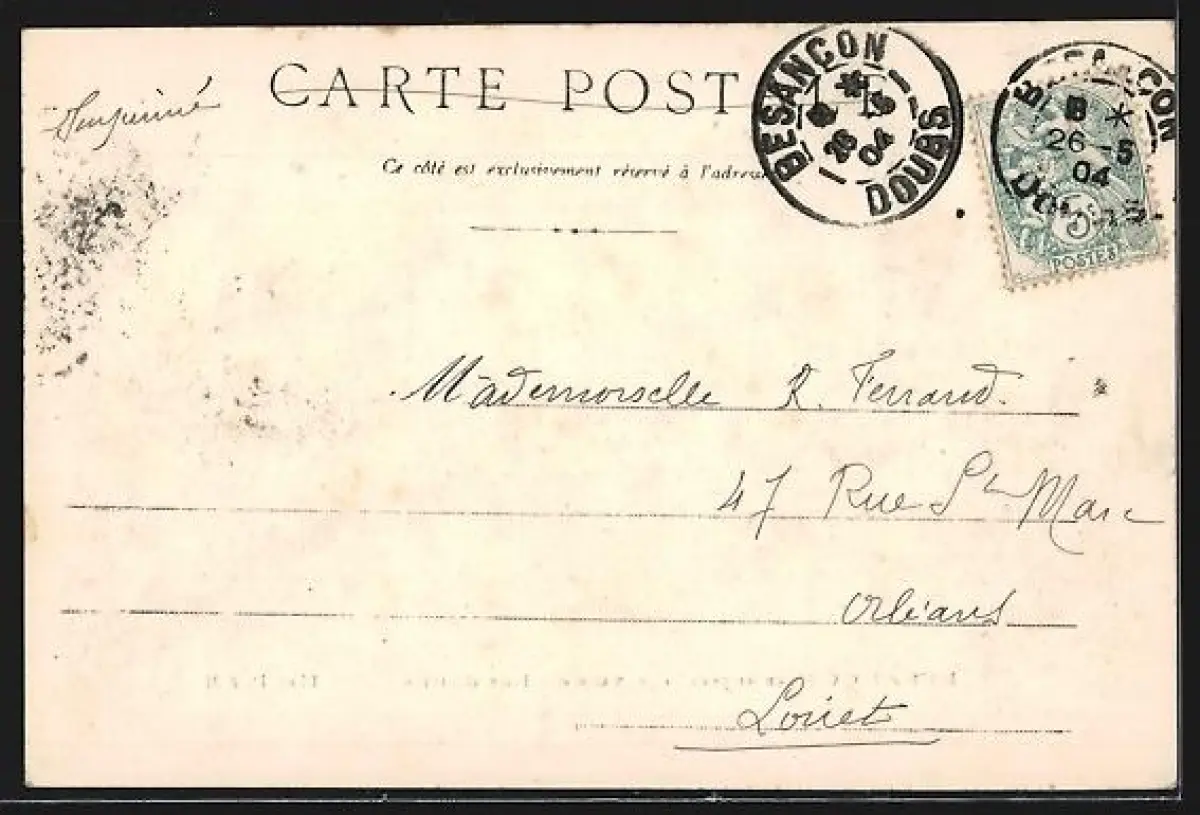 CARTE POST
Ce côté est exclusivement réservé à l'adresse
BESANÇON
26 5
04
DOUBS
BESANÇON
8 *
26 -5
04
DOUBS
5c
POSTES
Mademoiselle R. Ferrand.
47 Rue St Marc
Orléans
Loiret